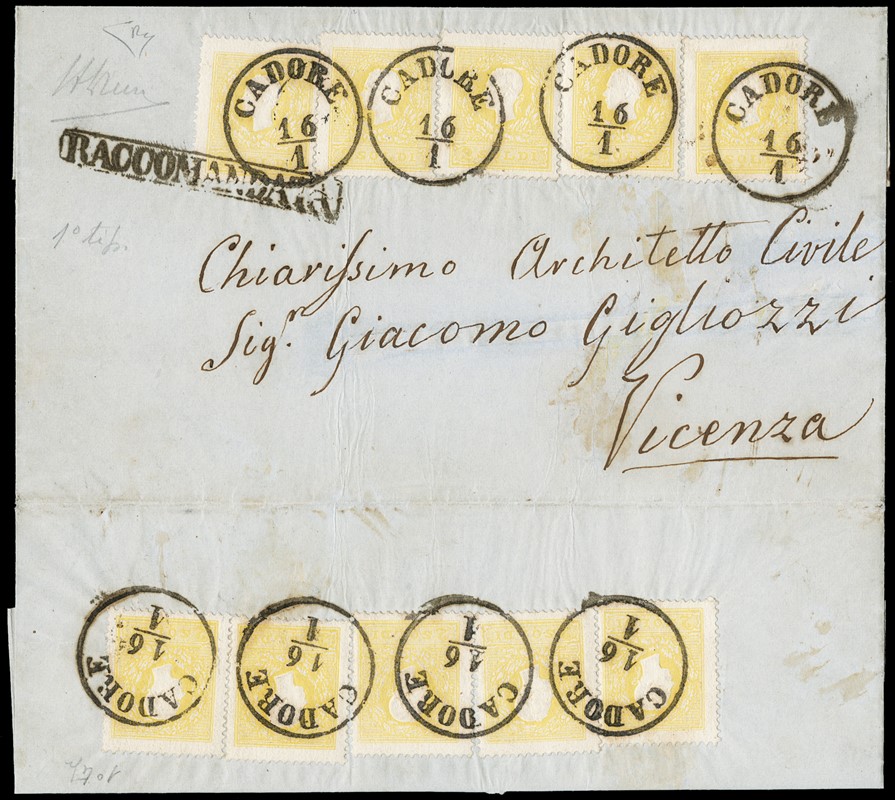 CADORE 16/1
CADORE 16/1
CADORE 16/1
CADORE 16/1
RACCOMANDATO
Chiariſsimo Architetto Civile
Sigr. Giacomo Gigliozzi
Vicenza
CADORE 16/1
CADORE 16/1
CADORE 16/1
CADORE 16/1